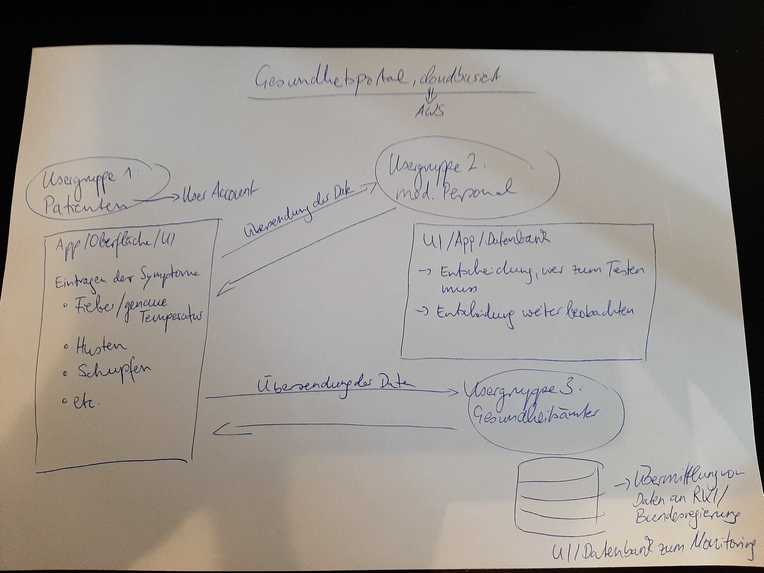 Gesundheitsportal, cloudbasiert
AWS
Usergruppe 1
Patienten
User Account
Usergruppe 2.
med. Personal
Übersendung der Date
App/Oberfläche/UI
Eintragen der Symptome
• Fieber/genaue
Temperatur
• Husten
• Schupfen
• etc.
UI/App/Datenbank
-> Entscheidung, wer zum Testen
muss
-> Entscheidung weiter beobachten
Übersendung der Daten
Usergruppe 3.
Gesundheitsämter
-> Übermittlung von
Daten an RKI/
Bundesregierung
UI/Datenbank zum Monitoring